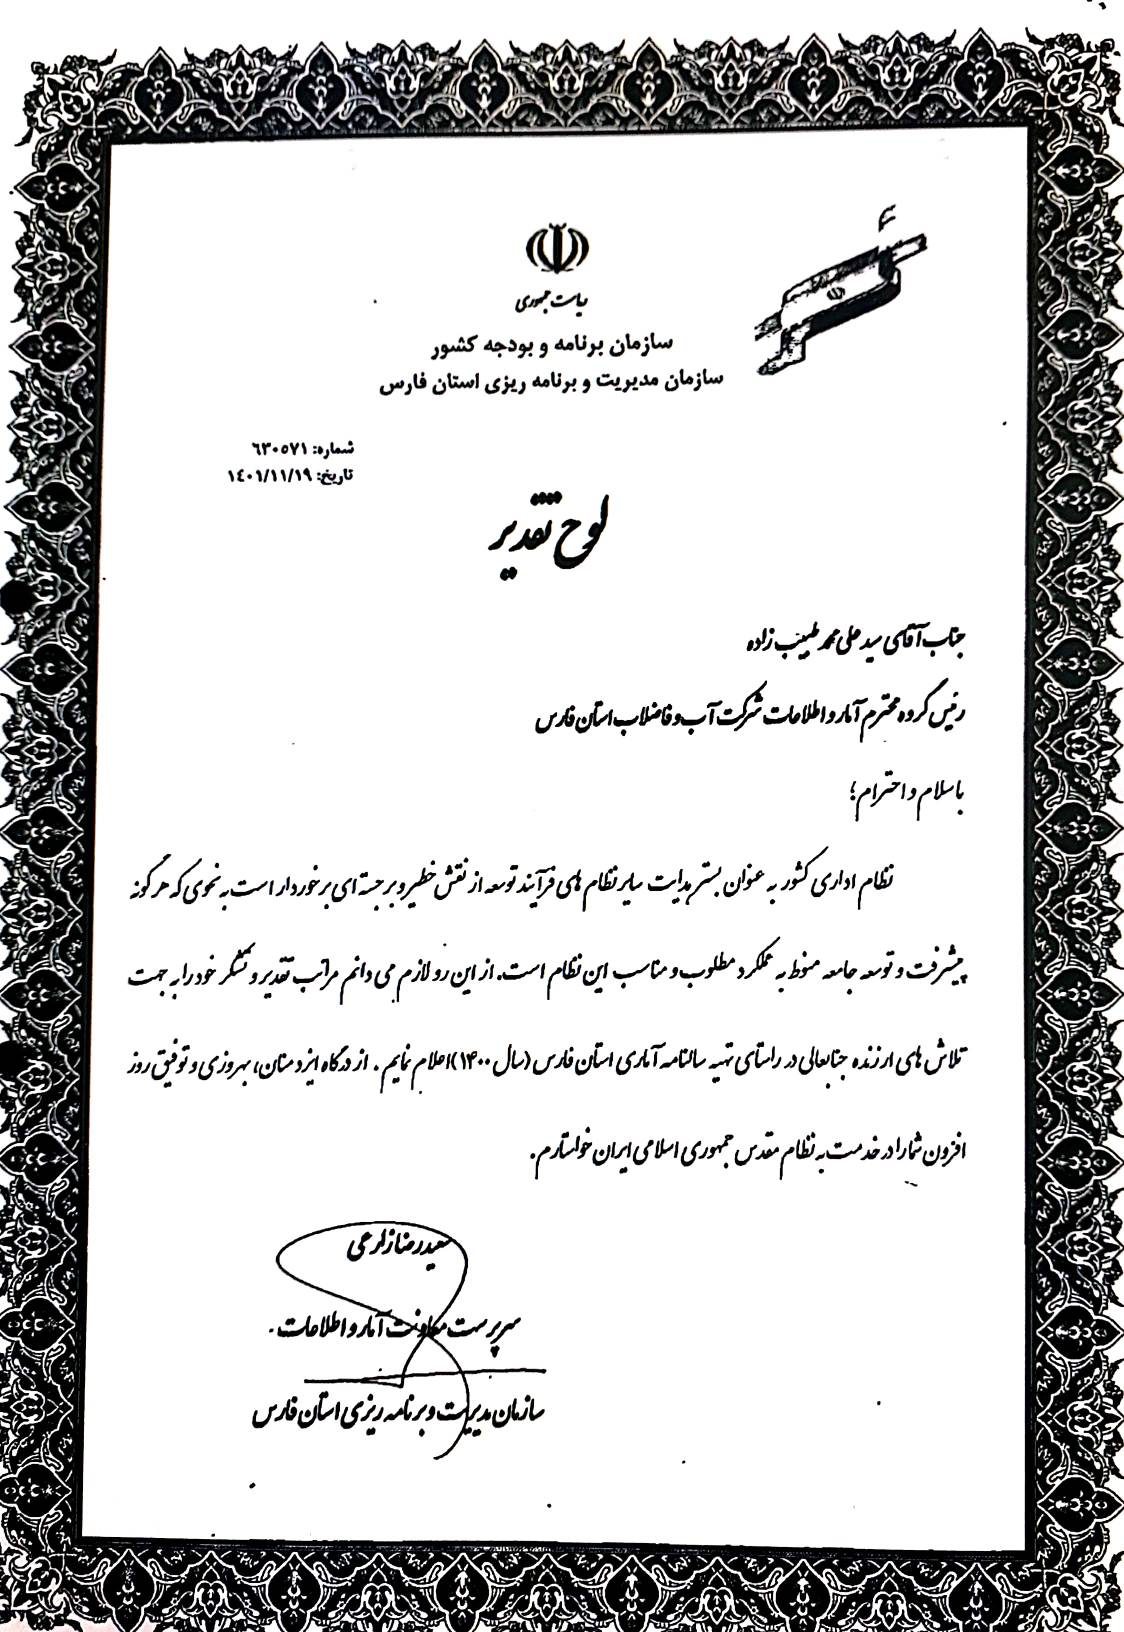 ریاست جمهوری
سازمان برنامه و بودجه کشور
سازمان مدیریت و برنامه ریزی استان فارس
شماره: ٦٣٠٥٧١
تاریخ: ١٤٠١/١١/١٩
لوح تقدیر
جناب آقای سید علی محمد طبیب زاده
رئیس گروه محترم آمار و اطلاعات شرکت آب و فاضلاب استان فارس
با سلام و احترام؛
نظام اداری کشور به عنوان بستر هدایت سایر نظام های فرآیند توسعه از نقش خطیر و برجسته ای برخوردار است به نحوی که هر گونه
پیشرفت و توسعه جامعه منوط به عملکرد مطلوب و مناسب این نظام است. از این رو لازم می دانم مراتب تقدیر و تشکر خود را به جهت
تلاش های ارزنده جنابعالی در راستای تهیه سالنامه آماری استان فارس (سال ۱۴۰۰) اعلام نمایم. از درگاه ایزد منان، بهروزی و توفیق روز
افزون شما را در خدمت به نظام مقدس جمهوری اسلامی ایران خواستارم.
سعیدرضا زارعی
سرپرست معاونت آمار و اطلاعات
سازمان مدیریت و برنامه ریزی استان فارس